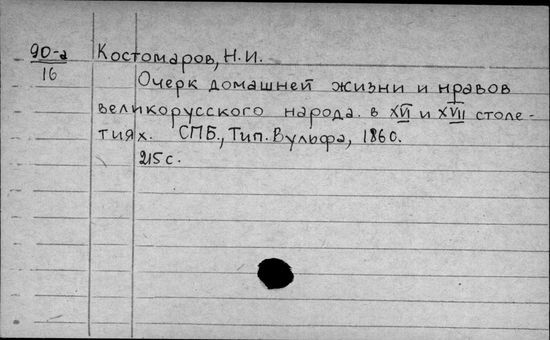 90-а Костомаров, Н. И.
16
Очерк домашней жизни и нравов
великорусского народа. в XVI и XVII столе-
тиях. СПБ., Тип. Вульфа, 1860.
215 с.